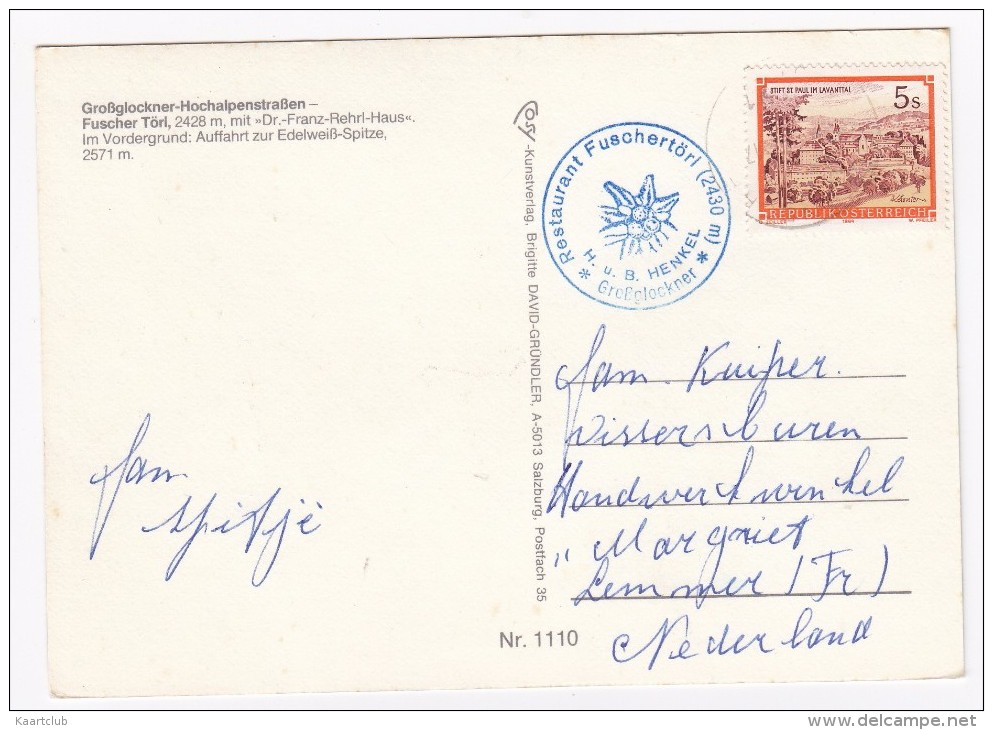 Großglockner-Hochalpenstraßen –
Fuscher Törl, 2428 m, mit »Dr.-Franz-Rehrl-Haus«.
Im Vordergrund: Auffahrt zur Edelweiß-Spitze,
2571 m.
-Kunstverlag, Brigitte DAVID-GRÜNDLER, A-5013 Salzburg, Postfach 35
Restaurant Fuschertörl (2430 m)
H. u. B. HENKEL
* Großglockner *
STIFT ST. PAUL IM LAVANTTAL
5 S
REPUBLIK ÖSTERREICH
1984
W. PFEILER
fam. Kuiper.
Vissersburen
Handwerkwinkel
„ Margriet
Lemmer (Fr)
Nederland
fam
Spitje
Nr. 1110
Kaartclub
www.delcampe.net